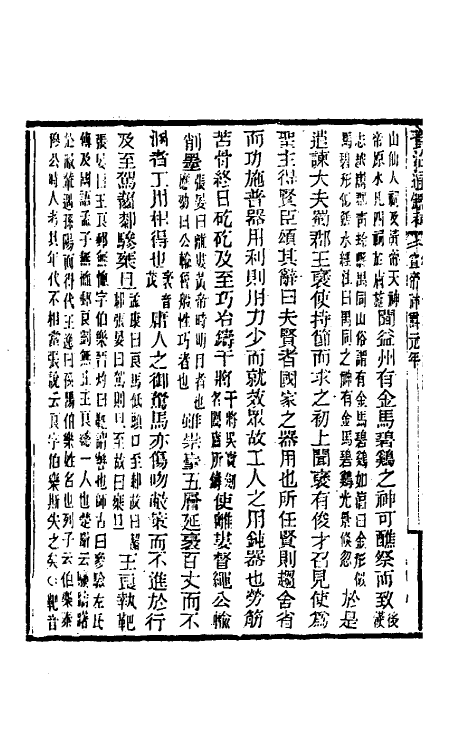 資治通鑑補 宣帝神爵元年
山仙人祠及黃帝天神
帝原水凡四祠於膚施
聞益州有金馬碧鷄之神可醮祭而致
後
漢
志越嶲郡靑蛉縣禺同山俗謂有金馬碧鷄如淳曰金形似
馬碧形似鷄水經注曰禺同之神有金馬碧鷄光景儵忽
於是
遣諫大夫蜀郡王褒使持節而求之初上聞褒有俊才召見使爲
聖主得賢臣頌其辭曰夫賢者國家之器用也所任賢則趨舍省
而功施普器用利則用力少而就效眾故工人之用鈍器也勞筋
苦骨終日矻矻及至巧冶鑄干將
干將吳寶劍
名闔廬所鑄
使離婁督繩公輸
削墨
張晏曰離婁黃帝時明目者也
應劭曰公輸魯般性巧者也
雖崇臺五層延袤百丈而不
溷者工用相得也
袤音
茂
庸人之御駑馬亦傷吻敝策而不進於行
及至駕齧膝驂乘旦
孟康曰良馬低頭口至膝故曰齧
膝張晏曰駕則旦至故曰乘旦
王良執靶
張晏曰王良郵無恤字伯樂晉灼曰轡也師古曰參驗左氏
傳及國語孟子郵無恤郵良劉無止王良總一人也楚辭云驥躊躇
於敝輦遇孫陽而得代王逸曰孫陽伯樂姓名也列子云伯樂秦
穆公時人考其年代不相當張說云良字伯樂斯失之矣靶音